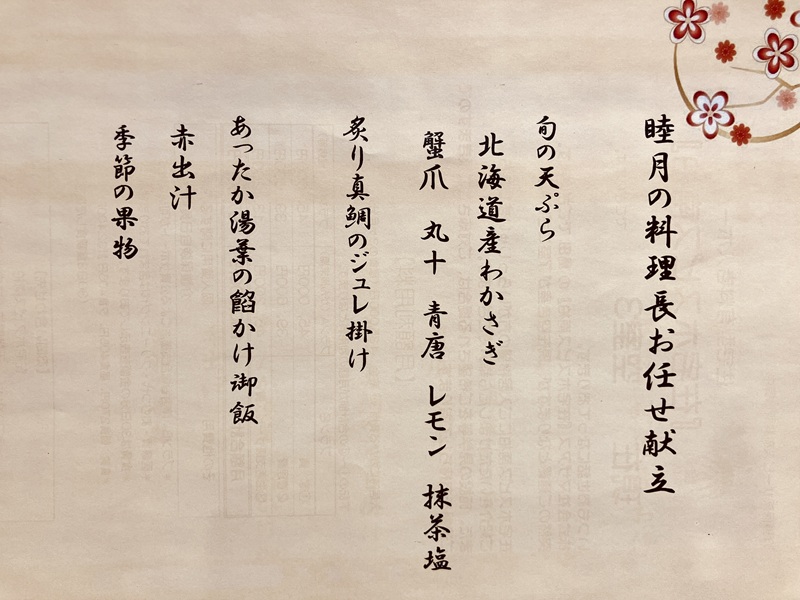 睦月の料理長お任せ献立
旬の天ぷら
北海道産わかさぎ
蟹爪　丸十　青唐　レモン　抹茶塩
炙り真鯛のジュレ掛け
あったか湯葉の餡かけ御飯
赤出汁
季節の果物